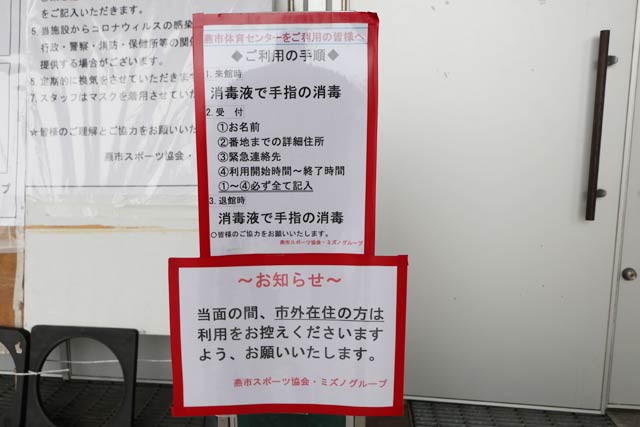 をご記入いただきます。
5.当施設からコロナウィルスの感染
行政・警察・消防・保健所等の関係
提供する場合がございます。
6.定期的に換気をさせていただきます
7.スタッフはマスクを着用させていた
★皆様のご理解とご協力をお願いいた
燕市スポーツ協会・ミズ
グループ
燕市体育センターをご利用の皆様へ
◆ご利用の手順◆
1.来館時
消毒液で手指の消毒
2.受付
①お名前
②番地までの詳細住所
③緊急連絡先
④利用開始時間～終了時間
①～④必ず全て記入
3.退館時
消毒液で手指の消毒
○皆様のご協力をお願いいたします。
燕市スポーツ協会・ミズノグループ
～お知らせ～
当面の間、市外在住の方は
利用をお控えくださいます
よう、お願いいたします。
燕市スポーツ協会・ミズノグループ